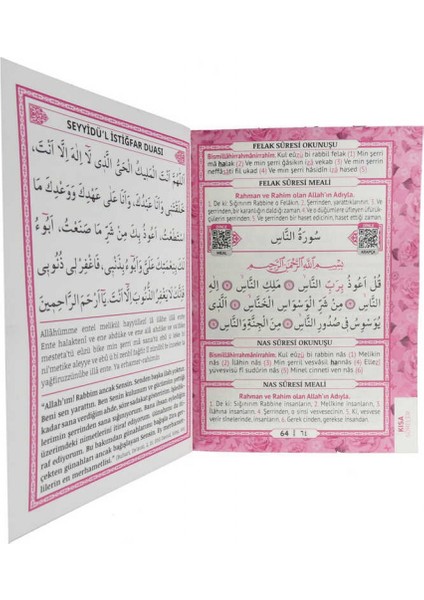 SEYYİDÜ'L İSTİĞFAR DUASI
اَللّٰهُمَّ اَنْتَ الْمَلِيكُ الْحَىُّ الَّذِى لَٓا اِلٰهَ اِلَّا اَنْتَ،
خَلَقْتَنِى وَاَنَا عَبْدُكَ، وَاَنَا عَلٰى عَهْدِكَ وَوَعْدِكَ مَا
اسْتَطَعْتُ، اَعُوذُ بِكَ مِنْ شَرِّ مَا صَنَعْتُ، اَبُٓوءُ
لَكَ بِنِعْمَتِكَ عَلَىَّ وَاَبُٓوءُ بِذَنْبِى، فَاغْفِرْ لِى ذُنُوبِى
فَاِنَّهُ لَا يَغْفِرُ الذُّنُوبَ اِلَّٓا اَنْتَ، يَٓا اَرْحَمَ الرَّاحِمِينَ
Allâhümme entel melikül hayyülezî lâ ilâhe illâ
Ente halaktenî ve ene abdüke ve ene alâ ahdike ve
mesteta'tü eûzü bike min şerri mâ
ni'metike aleyye ve ebûü bi zenbî fağfir lî
yağfiruzzünûbe illâ ente
"Allah'ım! Rabbim ancak Sensin. Senden başka ilah yoktur.
Beni sen yarattın. Ben Senin kulunum ve gücümün yettiği
kadar sana verdiğim ahde, sözümde
lerimin şerrinden sana sığınıyorum. Bana ihsan ettiğin
üzerimdeki nimetlerini itiraf ediyorum,
raf ediyorum. Bu bakımdan günahlarımı bağışla. Zira ger-
çekten günahları ancak bağışlayan Sensin. Ey merhamet-
lilerin en merhametlisi."
FELAK SÛRESİ OKUNUŞU
Bismillâhirrahmânirrahîm. Kul eûzü bi rabbil felak (1) Min şerri
mâ halak (2) Ve min şerri ğâsikın izâ vekab (3) Ve min şerrin
neffâsâti fil ukad (4) Ve min şerri hâsidin izâ hased (5)
FELAK SÛRESİ MEALİ
Rahman ve Rahim olan Allah'ın Adıyla.
1. De ki: Sığınırım Rabbine o Felâkın. 2. Şerrinden, yarattıklarının. 3. Ve
şerrinden, bir karanlığın daldığı zaman 4. Ve o düğümlere üfleyen üfürük-
çülerin şerrinden 5. Ve şerrinden bir haset edicinin, haset ettiği zaman.
سُورَةُ النَّاسِ
MEAL
ARAPÇA
بِسْمِ اللّٰهِ الرَّحْمٰنِ الرَّحِيمِ
قُلْ اَعُوذُ بِرَبِّ النَّاسِ ۝ مَلِكِ النَّاسِ ۝ اِلٰهِ
النَّاسِ ۝ مِنْ شَرِّ الْوَسْوَاسِ الْخَنَّاسِ ۝ اَلَّذِى
يُوَسْوِسُ فِى صُدُورِ النَّاسِ ۝ مِنَ الْجِنَّةِ وَالنَّاسِ ۝
NAS SÛRESİ OKUNUŞU
Bismillâhirrahmânirrahîm. Kul eûzü bi rabbin nâs (1) Melikin
nâs (2) İlâhin nâs (3) Min şerril vesvâsil hannâs (4) Ellezî
yüvesvisü fî sudûrin nâs (5) Minel cinneti ven nâs (6)
NAS SÛRESİ MEALİ
Rahman ve Rahim olan Allah'ın Adıyla.
1. De ki: Sığınırım Rabbine insanların, 2. Melikine insanların, 3.
İlâhına insanların, 4. Şerrinden, o sinsi vesvesecinin. 5. Ki, vesve-
se verir insanların içlerinde. 6. Gerek cinden, gerekse insandan.
64 | ٦٤
KISA
SURELER